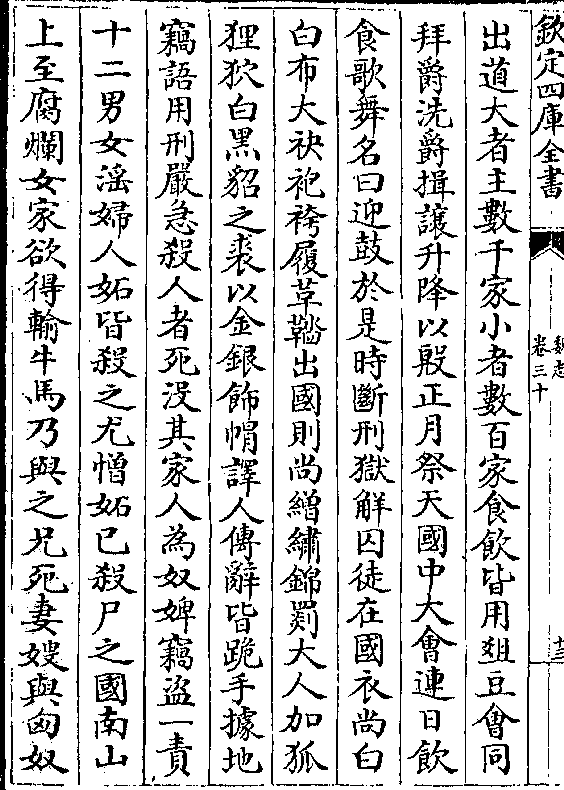 欽定四庫全書
魏志
卷三十
十三
出道大者主數千家小者數百家食飲皆用爼豆會同
拜爵洗爵揖讓升降以殷正月祭天國中大會連日飲
食歌舞名曰迎鼓於是時斷刑獄解囚徒在國衣尚白
白布大袂袍袴履草鞜出國則尚繒繡錦罽大人加狐
狸狖白黑貂之裘以金銀飾帽譯人傳辭皆跪手據地
竊語用刑嚴急殺人者死没其家人為奴婢竊盜一責
十二男女淫婦人妬皆殺之尤憎妬已殺尸之國南山
上至腐爛女家欲得輸牛馬乃與之兄死妻嫂與匈奴